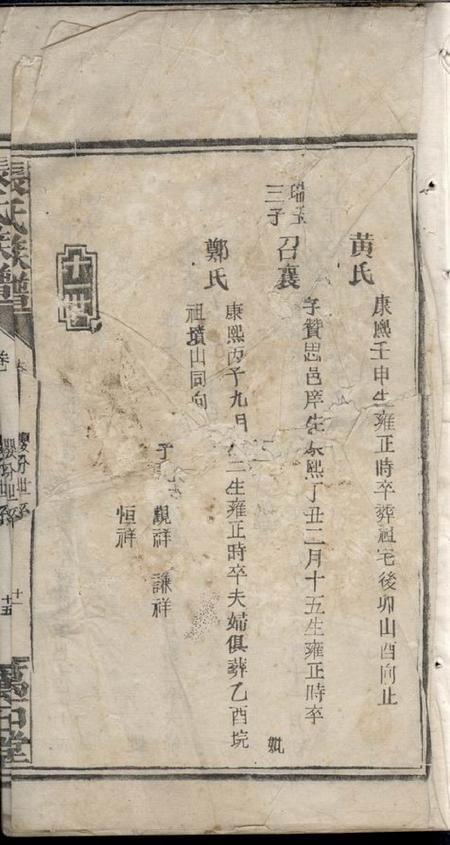 黄氏
康熙壬申生雍正時卒葬祖宅後卯山酉向止
瑞玉
三子
召襄
字贊思邑庠生康熙丁丑二月十五生雍正時卒
妣
鄭氏
康熙丙子九月 二生雍正時卒夫婦俱葬乙酉坑
祖墳山同向
子
觀祥 謙祥
恒祥
張氏族譜
卷
十五